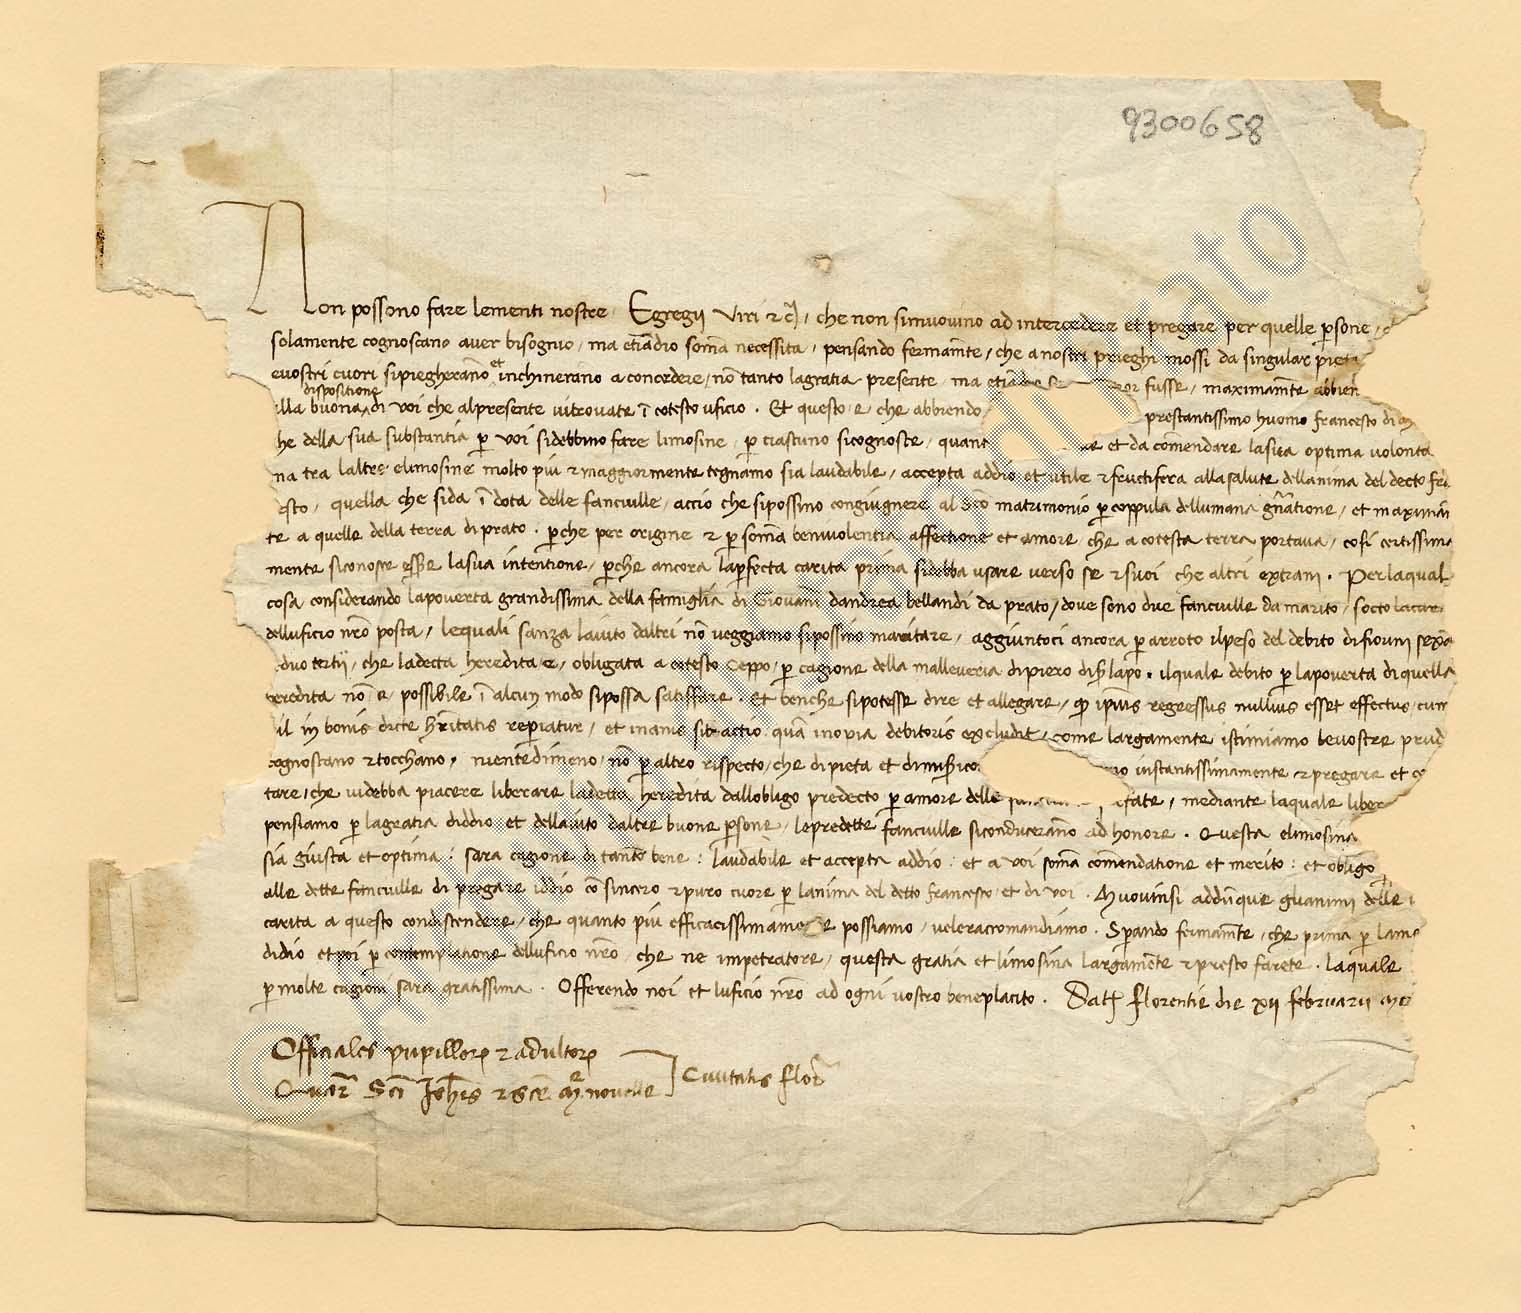 9300658
Non possono fare lementi nostre Egregij Viri &c, che non simuovino ad intercedere et pregare per quelle persone
solamente cognoscano aver bisogno, ma etiadio soma necessita, pensando fermamte, che a nostri prieghi mossi da singular piet
evostri cuori sipiegherano et inchinerano a concedere, no tanto lagratia presente, ma fusse, maximamte abbien
dispositione
lla buona di voi che alpresente vitrovate i cotesto uficio. Et questo e che abbiendo prestantissimo huomo francesco di
he della sua substantia per voi sidebbino fare limosine, per ciascuno sicognosce, quant et da comendare lasua optima volonta
na tra laltre elimosine molto piu & maggiormente tegnamo sia laudabile, accepta addio et utile & fructifera alla salute dellanima del decto
esto, quella che sida i dota delle fanciulle, accio che sipossino congiugnere al sco matrimonio per coppula dellumana gnatione, et maximam
te a quelle della terra di prato. perche per origine & per soma benivolentia affectione et amore che a cotesta terra portava, cosi certissima
mente siconosce essere lasua intentione, perche ancora laperfecta carita prima sidebba usare verso se & suoi che altri extrani. Perlaqual
cosa considerando lapoverta grandissima della famiglia di Giovani dandrea bellandi da prato, dove sono due fanciulle da marito, socto lacura
delluficio nro posta, lequali sanza laiuto daltri no veggiamo sipossino maritare, aggiuntoci ancora per arroto ilpeso del debito di fiorini
duo tertii, che ladecta heredita e, obligata a cotesto Ceppo, per cagione della malleveria di piero di lapo. ilquale debito per lapoverta di quella
heredita no e, possibile i alcun modo sipossa satisffare. Et benche sipotesse dire et allegare, ipius regressus nullius esset effectus, cum
il in bonis dicte hritatis repiatur, et inanis sit actio quam inopia debitoris excludit, come largamente istimiamo levostre prud
cognoscano & tocchano, nientedimeno, no per altro rispecto, che di pieta et di instantissimamente & pregare et
tare, che videbba piacere liberare ladetta heredita dallobligo predecto per amore delle fate, mediante laquale liber
pensiamo per lagratia diddio et dellaiuto daltre buone persone, lepredette fanciulle siconducerano ad honore. Questa elimosina
sia giusta et optima: sara cagione di tanto bene: laudabile et accepta addio: et a voi soma comendatione et merito: et obligo
alle dette fanciulle di pregare iddio co sincero & puro cuore per lanima del detto francesco et di voi. Muovinsi addunque glianimi delle
carita a questo condiscendere, che quanto piu efficacissimame te possiamo, veleraccomandiamo. Sperando fermamte, che prima per lamo
didio et poi per contemplatione delluficio nro, che ne impetratore, questa gratia et limosina largamente & presto farete. laquale
per molte cagioni sara gratissima. Offerendo noi et luficio nro ad ogni vostro beneplacito. Dat florentie die xii februarii
Officiales pupillorum & adultorum
Civitatis flor